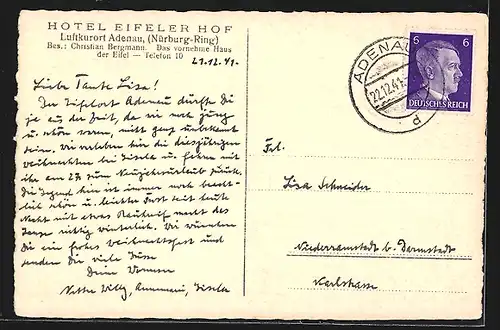 HOTEL EIFELER HOF
Luftkurort Adenau, (Nürburg-Ring)
Bes.: Christian Bergmann. Das vornehme Haus
der Eifel — Telefon 10
21.12.41.
Liebe Tante Lisa!
Der Eifelort Adenau dürfte Di
je aus der Zeit, da wir noch jung
u. schön waren, nicht ganz unbekannt
sein. Wir verleben hier die diesjährigen
Weihnachten bei Gisela u. fahren mit
ihr am 27. zum Neujahrsurlaub zurück.
Die Gegend hier ist immer noch
schön u. leichter Frost seit heute
Nacht mit etwas Rauhreif macht das
Ganze richtig winterlich. Wir wünschen
Dir ein frohes Weihnachtsfest und
senden Dir viele Grüße
Deine
Willy, Annemarie, Gisela
6 6
DEUTSCHES REICH
ADENAU
22.12.41
d
Frl.
Lisa Schneider
Niederramstadt b. Darmstadt
Karlstrasse